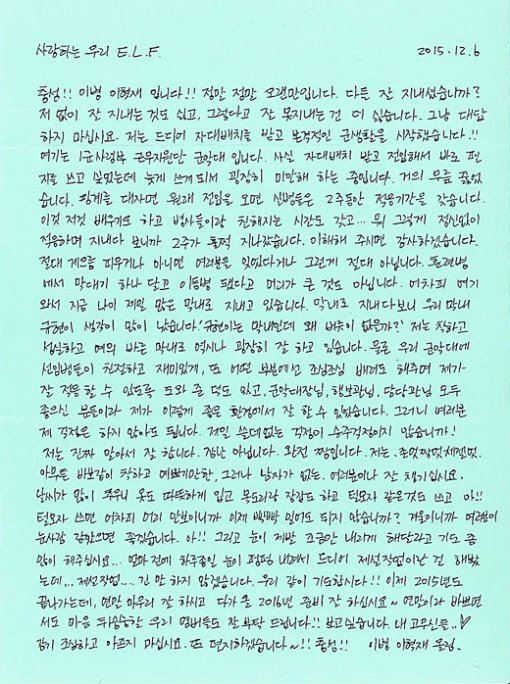 사랑하는 우리 E.L.F. 2015.12.6
충성!! 이병 이혁재 입니다!! 정말 정말 오랜만입니다. 다들 잘 지내셨습니까?
저 없이 잘 지내는 것도 싫고, 그렇다고 잘 못지내는 건 더 싫습니다. 그냥 대답
하지 마십시오. 저는 드디어 자대배치를 받고 본격적인 군생활을 시작했습니다!!
여기는 1군사령부 근무지원단 군악대 입니다. 사실 자대배치 받고 전입해서 바로 편
지를 쓰고 싶었는데 늦게 쓰게 되서 굉장히 미안해 하는 중입니다. 거의 무릎 꿇었
습니다. 핑계를 대자면 원래 전입을 오면 신병들은 2주동안 적응기간을 갖습니다.
이것 저것 배우기도 하고 병사들이랑 친해지는 시간도 갖고... 뭐 그렇게 정신없이
적응하며 지내다 보니까 2주가 훌쩍 지나갔습니다. 이해해 주시면 감사하겠습니다.
절대 게으름 피우거나 아니면 여러분을 잊었다거나 그런게 절대 아닙니다. 훈련병
에서 막대기 하나 달고 이등병 됐다고 머리가 큰 것도 아닙니다. 어차피 여기
와서 지금 나이 제일 많은 막내로 지내고 있습니다. 막내로 지내다보니 우리 막내
규현이 생각이 많이 났습니다! 규현이는 막내인데 왜 버릇이 없을까? 저는 착하고
성실하고 예의 바른 막내로 역시나 굉장히 잘 하고 있습니다. 물론 우리 군악대에
선임병들이 친절하고 재미있게, 또 어떤 부분에선 조심조심 배려도 해주며 제가
잘 적응할 수 있도록 도와 준 덕도 있고, 군악대장님, 행보관님, 담당관님 모두
좋으신 분들이라 제가 이렇게 좋은 환경에서 잘 할 수 있었습니다. 그러니 여러분
제 걱정은 하지 않아도 됩니다. 제일 쓸데없는 걱정이 슈주걱정이지 않습니까!
저는 진짜 알아서 잘 합니다. 겁나 아닙니다. 완전 짱입니다. 저는.
아무튼 바보같이 착하고 예쁘기만한, 그러나 남자가 없는. 여러분이나 잘 챙기십시오.
날씨가 많이 추우니 옷도 따뜻하게 입고 목도리랑 장갑도 하고 털모자 같은것도 쓰고 아!!
털모자 쓰면 어차피 머리 안보이니까 이제 빡빡 밀어도 되지 않습니까? 겨울이니까 여러분이
눈사람 같았으면 좋겠습니다. 아!! 그리고 눈이 제발 조금만 내리게 해달라고 기도 좀
많이 해주십시오... 얼마전에 하루종일 눈이 펑펑 내려서 드디어 제설작업이란 걸 해봤
는데... 제설작업.... 긴 말 하지 않겠습니다. 우리 같이 기도합시다!! 이제 2015년도
끝나가는데, 연말 마무리 잘 하시고 다가올 2016년 준비 잘 하십시오~ 연말이라 바쁘면
서도 마음 뒤숭숭한 우리 멤버들도 잘 부탁 드립니다!! 보고싶습니다. 내 고우신들..♡
감기 조심하고 아프지 마십시오. 또 편지하겠습니다~!! 충성!! 이병 이혁재 올림.